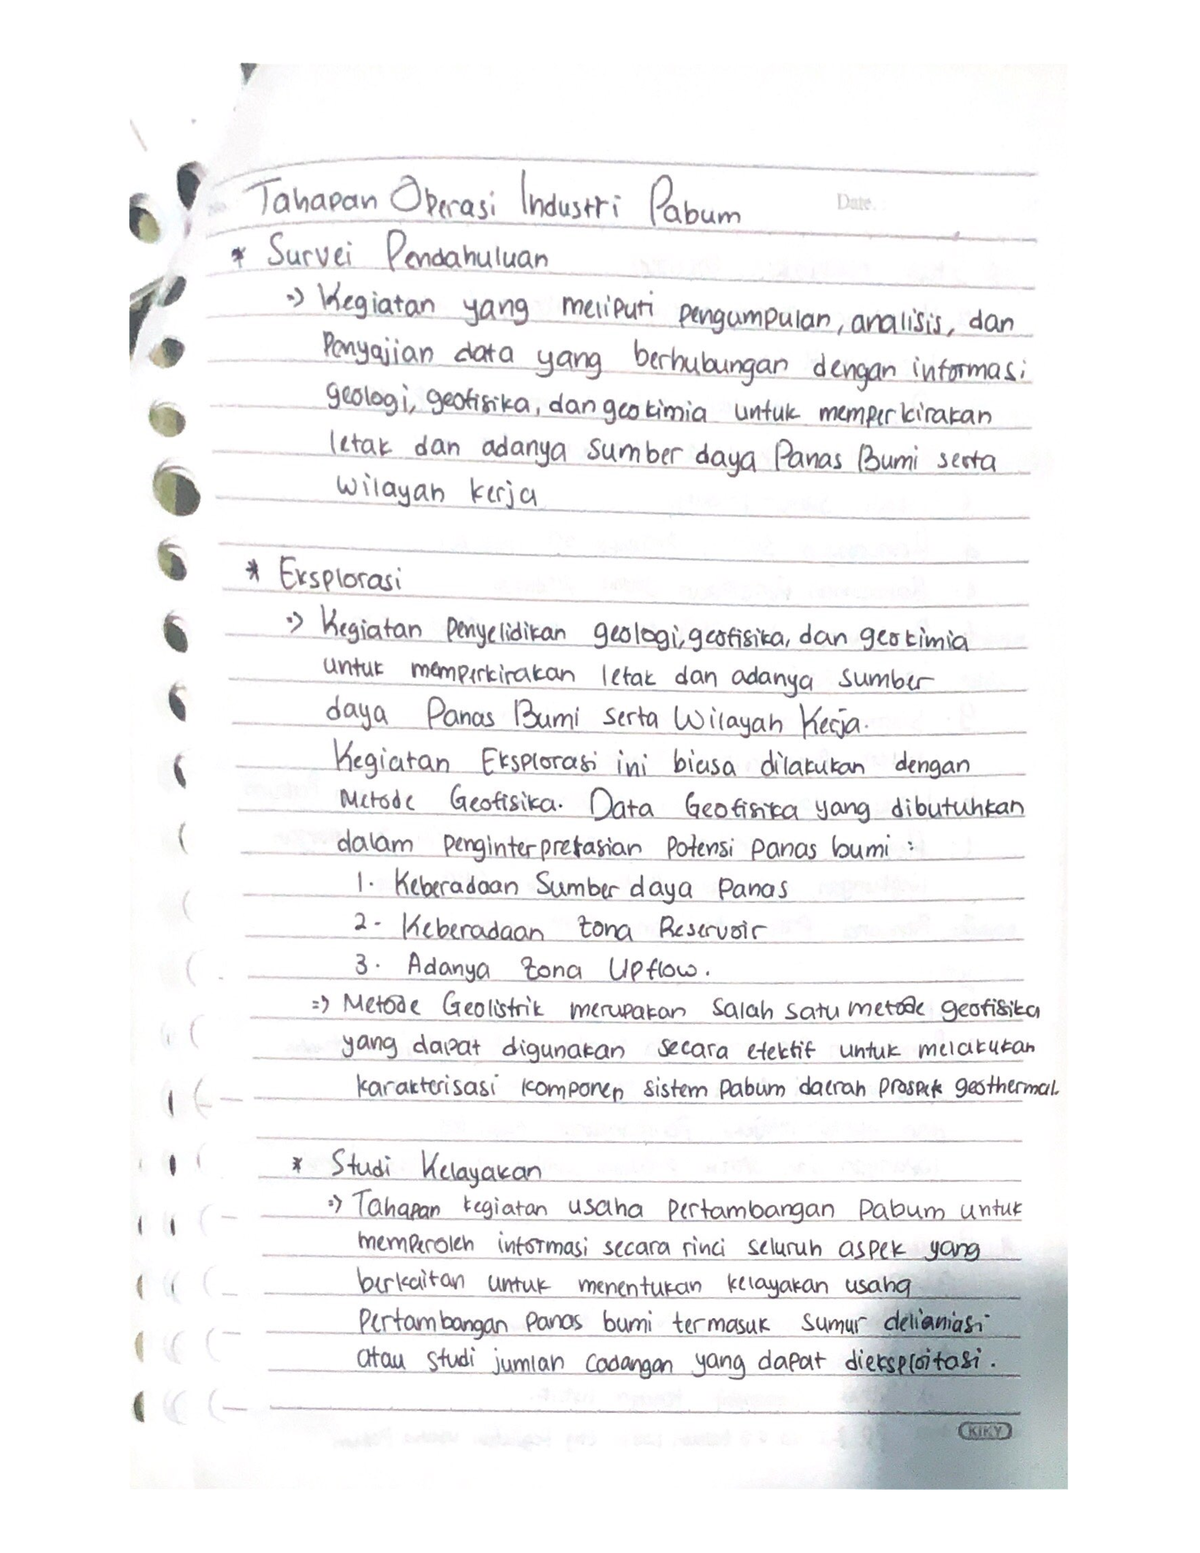 Tahapan Operasi Industri Pabum
Date.
* Survei Pendahuluan
=> Kegiatan yang meliputi pengumpulan, analisis, dan
Penyajian data yang berhubungan dengan informasi
geologi, geofisika, dan geokimia untuk memperkirakan
letak dan adanya sumber daya Panas Bumi serta
wilayah kerja
* Eksplorasi
=> Kegiatan penyelidikan geologi, geofisika, dan geokimia
untuk memperkirakan letak dan adanya sumber
daya Panas Bumi serta Wilayah Kerja.
Kegiatan Eksplorasi ini biasa dilakukan dengan
Metode Geofisika. Data Geofisika yang dibutuhkan
dalam penginterpretasian Potensi panas bumi :
1. Keberadaan Sumber daya Panas
2. Keberadaan zona Reservoir
3. Adanya zona Upflow.
=> Metode Geolistrik merupakan salah satu metode geofisika
yang dapat digunakan secara efektif untuk melakukan
karakterisasi komponen sistem pabum daerah prospek geothermal.
* Studi Kelayakan
=> Tahapan kegiatan usaha pertambangan Pabum untuk
memperoleh informasi secara rinci seluruh aspek yang
berkaitan untuk menentukan kelayakan usaha
Pertambangan panas bumi termasuk sumur delianiasi
atau studi jumlah cadangan yang dapat dieksploitasi.
KIKY